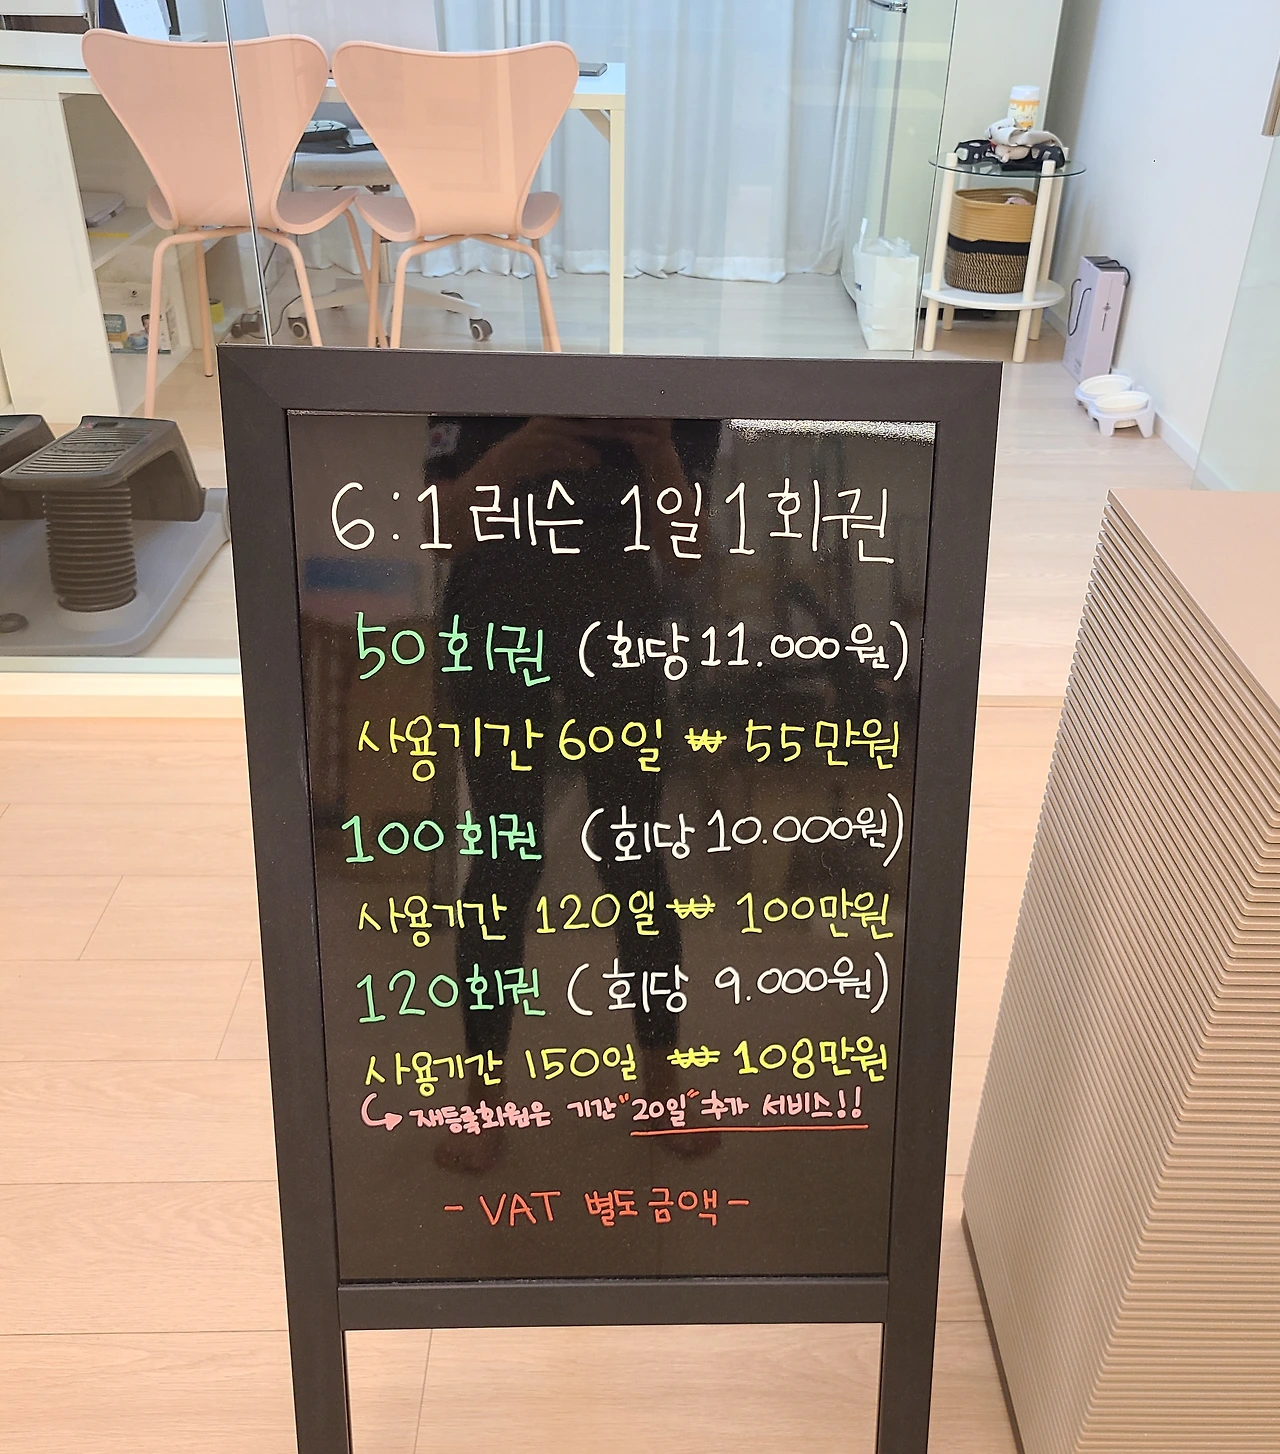 6:1 레슨 1일 1회권
50회권 (회당 11.000원)
사용기간 60일 ₩ 55만원
100회권 (회당 10.000원)
사용기간 120일 ₩ 100만원
120회권 (회당 9.000원)
사용기간 150일 ₩ 108만원
재등록회원은 기간 "20일" 추가 서비스!!
- VAT 별도 금액 -